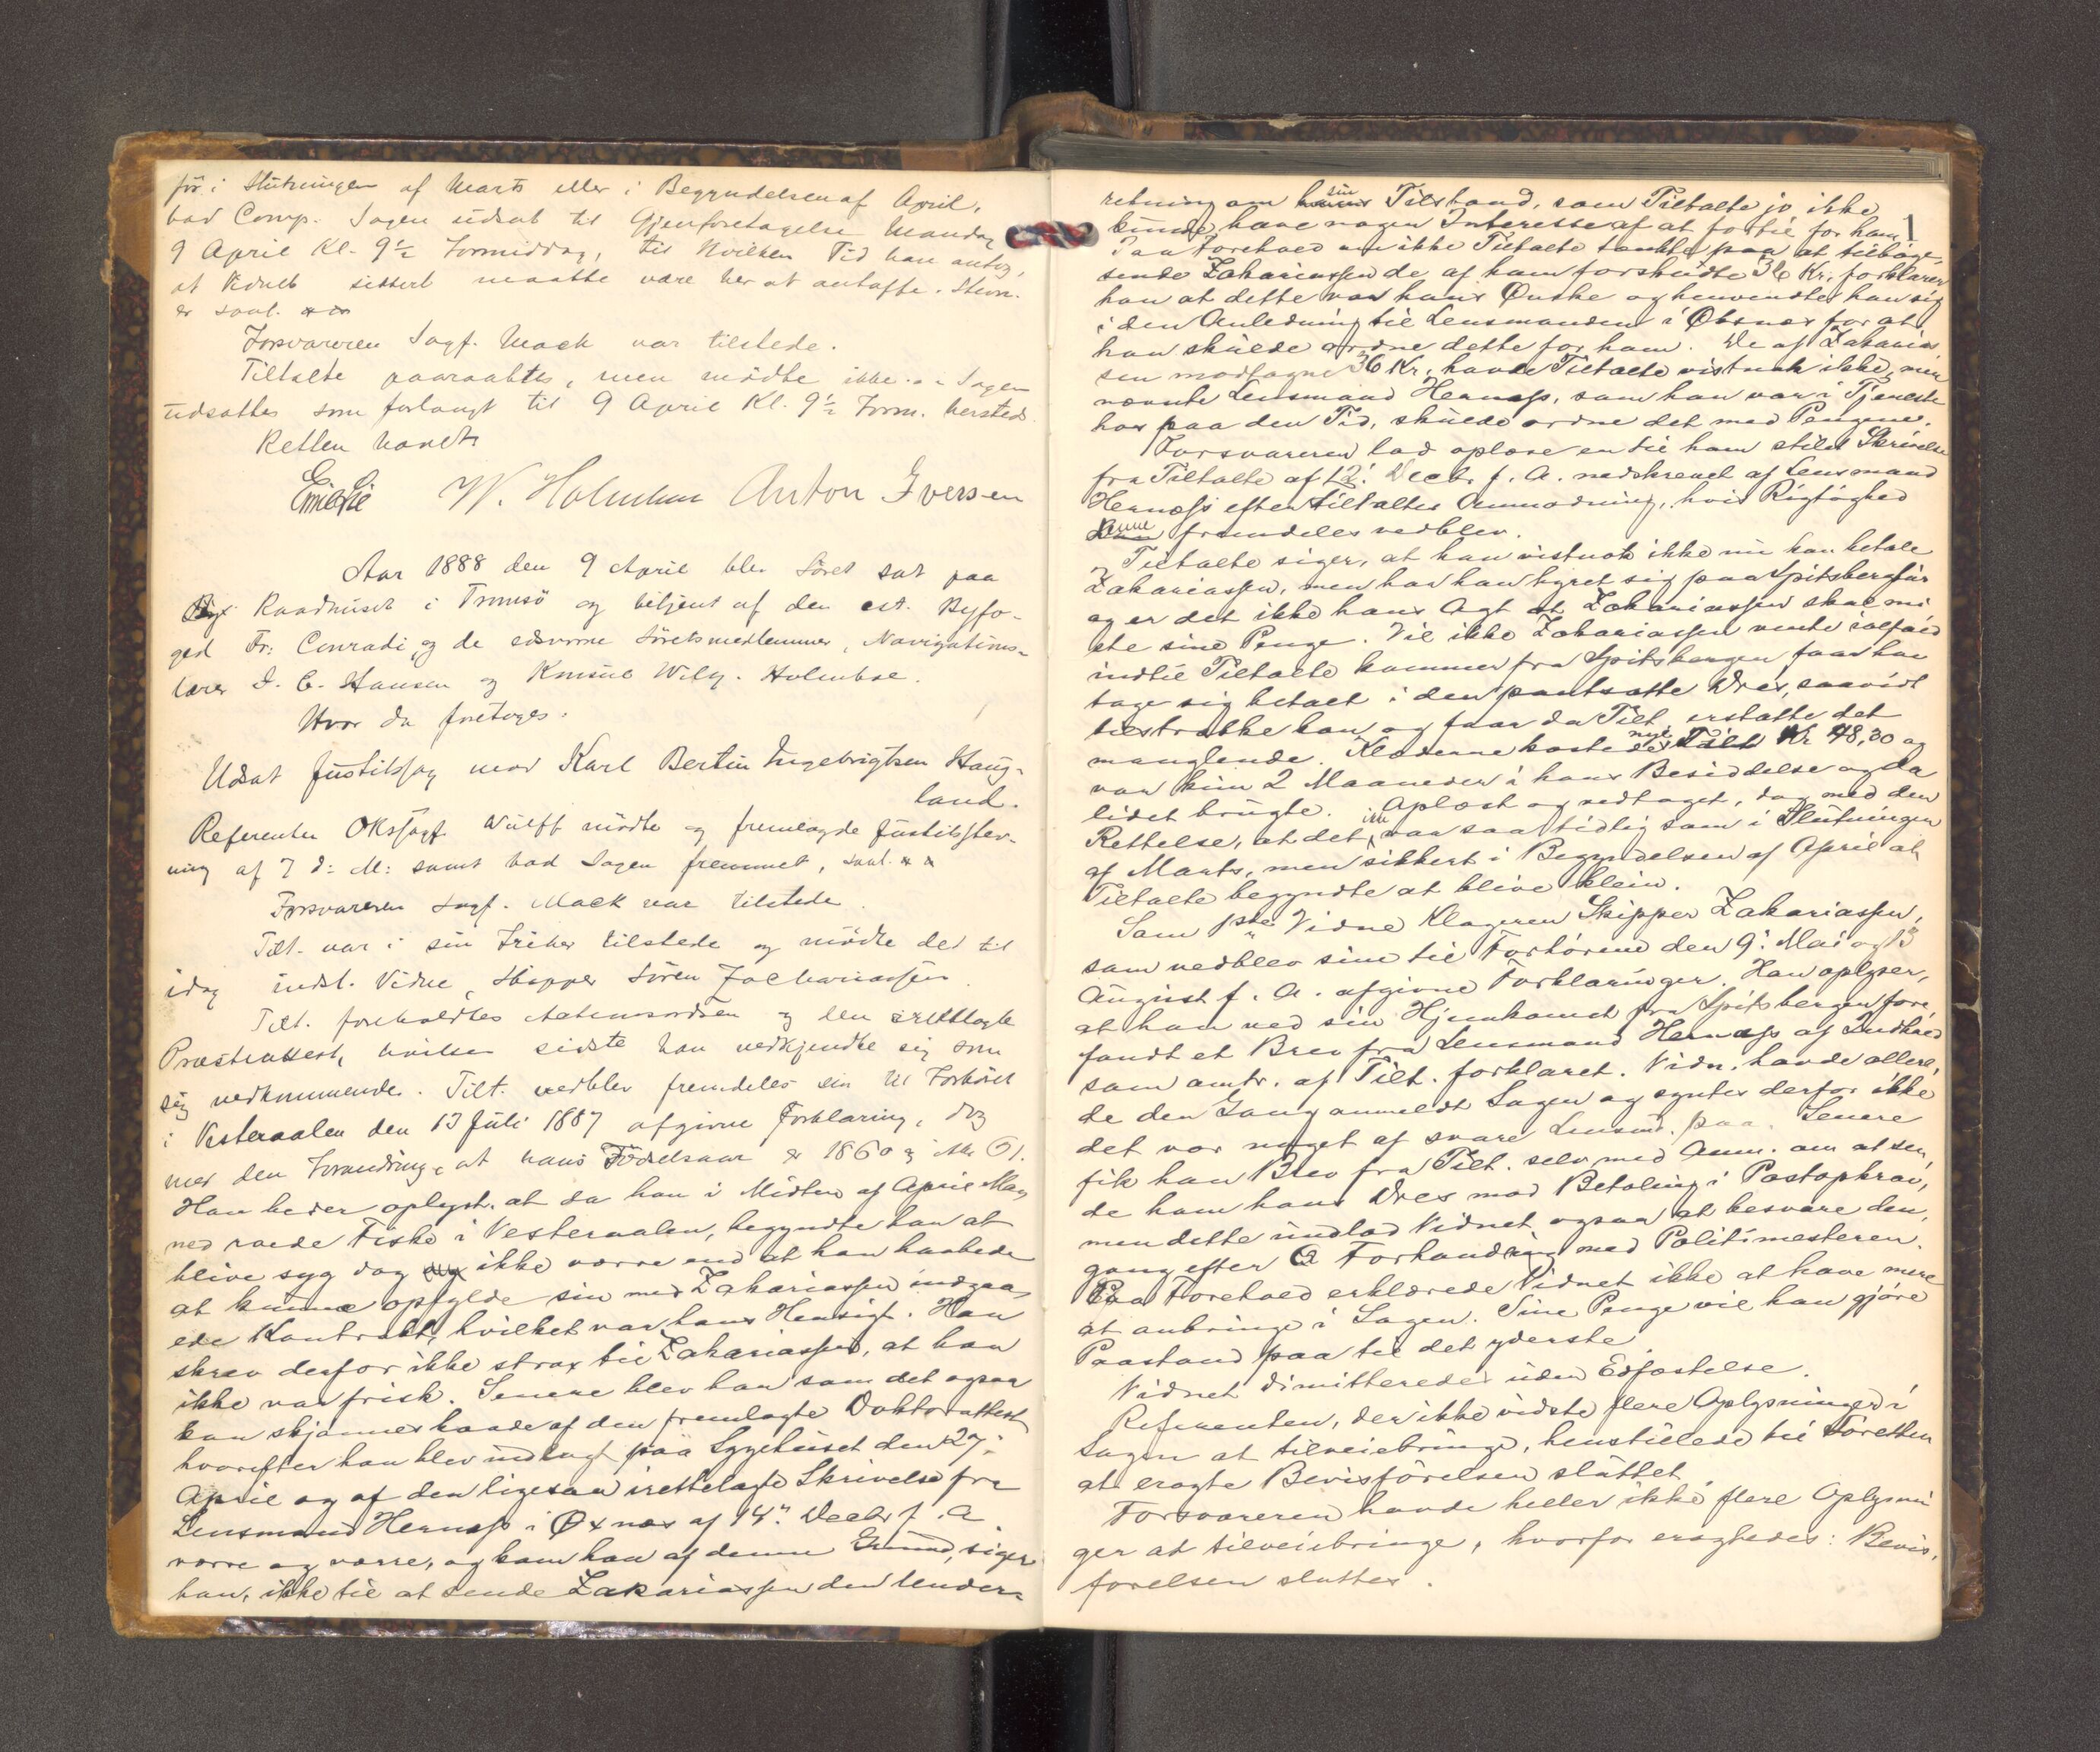 før i Slutningen af Marts eller i Begyndelsen af April,
bad Comp. Sagen udsat til Gjenforetagelse Mandag
9 April Kl. 9½ Formiddag, til hvilken Tid han antog,
at Vidnet sikkert maatte være her at antaffe. Stevn.
er saal.
Forsvareren Sagf. Mack var tilstede.
Tiltalte paaraabtes, men mødte ikke. Sagen
udsattes som forlangt til 9 April Kl. 9½ Form. hersteds.
Retten hævet
W. Holmboe Anton Iversen
Aar 1888 den 9 April blev Søret sat paa
Raadhuset i Tromsö og betjent af den cst. Byfo-
ged Fr: Conradi, og de edsvorne Søretsmedlemmer, Navigations-
lærer I. C. Hansen og Konsul Wilh. Holmboe.
Hvor da foretoges:
Udsat Justitssag mod Karl Bertin Ingebrigtsen Haug-
land.
Referenten ORSsagf. Wulff mödte og fremlagde Justitsstev-
ning af 7 d: M: samt bad Sagen fremmet, saal.
Forsvareren Sagf. Mack var tilstede.
Tilt. var i sin Frihed tilstede og mödte det til
idag indst. Vidne, Skipper Sören Zachariassen.
Tilt. foreholdtes Aatensordren og den irettelagte
Præsteattest, hvilken sidste han vedkjendte sig som
sig vedkommende. Tilt. vedblev fremdeles sin til Forhöret
i Vesteraalen den 13 Juli 1887 afgivne Forklaring, dog
med den Forandring, at hans Födselsaar er 1860 og ikke 61.
Han beder oplyst, at da han i Midten af April Maa-
ned roede Fiske i Vesteraalen, begyndte han at
blive syg dog ikke værre end at han haabede
at kunne opfylde sin med Zakariassen indgaa-
ede Kontrakt, hvilket var hans Hensigt. Han
skrev derfor ikke strax til Zakariassen, at han
ikke var frisk. Senere blev han som det ogsaa
kan skjønnes baade af den fremlagte Doktorattest
hvorefter han blev indlagt paa Sygehuset den 27:
April og af den ligesaa irettelagte Skrivelse fra
Lensmand Hernæss i Øxnes af 14: Decbr f. A.
værre og værre, og kom han af denne Grund, siger
han, ikke til at sende Zakariassen den Under-
retning om sin Tilstand, som Tiltalte jo ikke
kunde have nogen Interesse af at fortie for ham.
Paa Forehold om ikke Tiltalte tænkte paa at tilbage-
sende Zakariassen de af ham forskudte 36 Kr, forklarer
han at dette var hans Ønske og henvendte han sig
i den Anledning til Lensmanden i Øksnæs for at
han skulde ordne dette for ham. De af Zakarias-
sen modtagne 36 Kr, havde Tiltalte vistnok ikke, men
nævnte Lensmand Hernæss, som han var i Tjeneste
hos paa den Tid, skulde ordne det med Pengene.
Forsvareren lod oplæse en til ham stilet Skrivelse
fra Tiltalte af 12: Decbr. f. A. nedskrevet af Lensmand
Hernæss efter Tiltaltes Anmodning, hvis Rigtighed
denne fremdeles vedblev.
Tiltalte siger, at han vistnok ikke nu kan betale
Zakariassen, men har han hyret sig paa Spitsbergstur
og er det ikke hans Agt at Zakariassen skal mi-
ste sine Penge. Vil ikke Zakariassen vente ialfald
indtil Tiltalte kommer fra Spitsbergen faar han
tage sig betalt i den pantsatte Dres, saavidt
tilstrække kan og faar da Tilt. erstatte det
manglende. Klæderne kostede nye Tilt Kr 48,30 og
var kun 2 Maaneder i hans Besiddelse og da
lidet brugte. Oplæst og vedtaget, dog med den
Rettelse, at det ikke var saa tidlig som i Slutningen
af Marts, men sikkert i Begyndelsen af April at
Tiltalte begyndte at blive klein.
Som 1ste Vidne Klageren Skipper Zakariassen,
som vedblev sine til Forhörene den 9: Mai og 15
August f. A. afgivne Forklaringer. Han oplyser,
at han ved sin Hjemkomst fra Spitsbergen fore-
fandt et Brev fra Lensmand Hernæss af Indhold
som omtr. af Tilt. forklaret. Vidn. havde allere-
de den Gang anmeldt Sagen og syntes derfor ikke
det var noget at svare Lensm. paa. Senere
fik han Brev fra Tilt. selv med Anm. om at sen-
de ham hans Dres mod Betaling i Postopkrav,
men dette undlod Vidnet ogsaa at besvare den
gang efter Forhandling med Politimesteren.
Paa Forehold erklærede Vidnet ikke at have mere
at anbringe i Sagen. Sine Penge vil han gjöre
Paastand paa til det yderste.
Vidnet dimitteredes uden Edfæstelse.
Referenten, der ikke vidste flere Oplysninger i
Sagen at tilveiebringe, henstillede til Søretten
at eragte Bevisførelsen sluttet.
Forsvareren havde heller ikke flere Oplysnin-
ger at tilveiebringe, hvorfor eragtedes: Bevis-
førelsen sluttes.